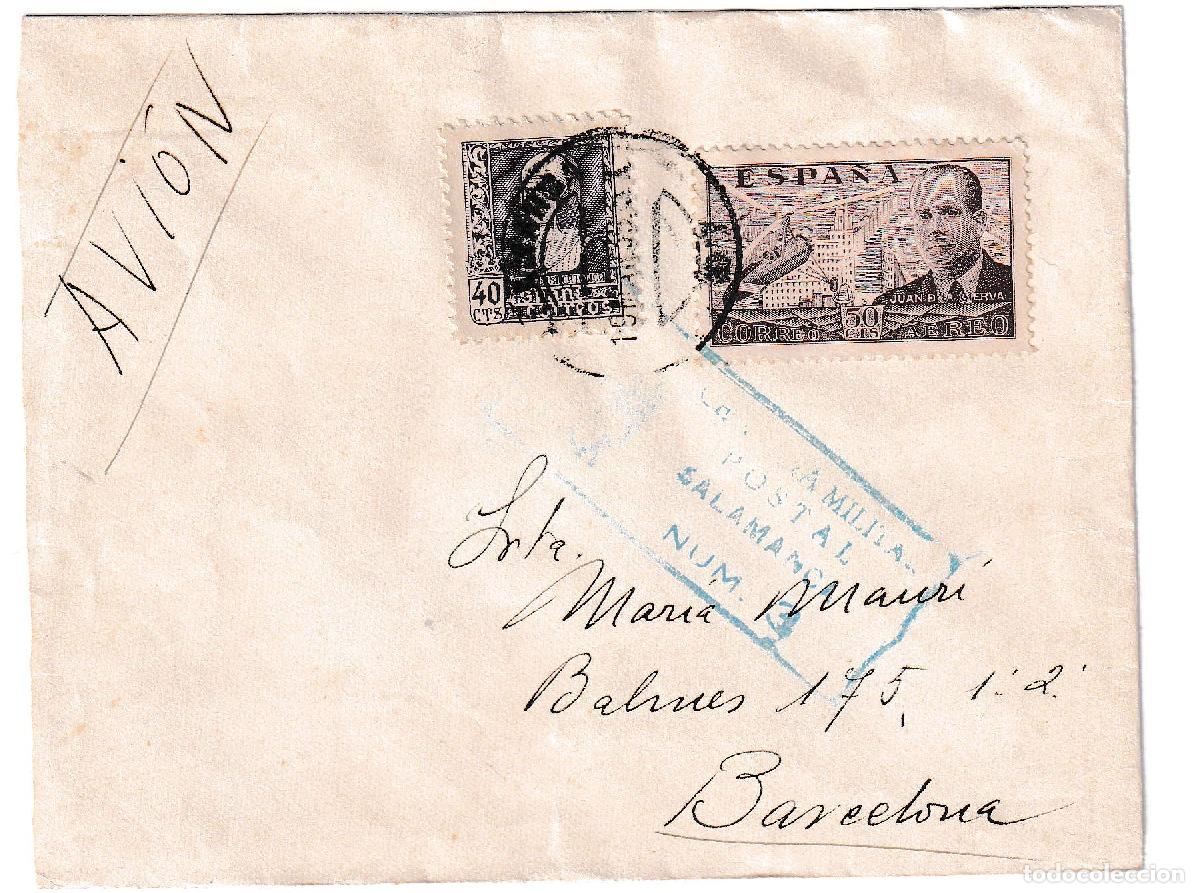 AVIÓN
40
CTS
ESPAÑA
CORREOS
ESPAÑA
JUAN DE LA CIERVA
CORREO 50 CTS AEREO
MILITAR
POSTAL
SALAMANCA
NUM. 3
Srta.
María Maurí
Balmes 175, 1º 2ª
Barcelona
todocoleccion